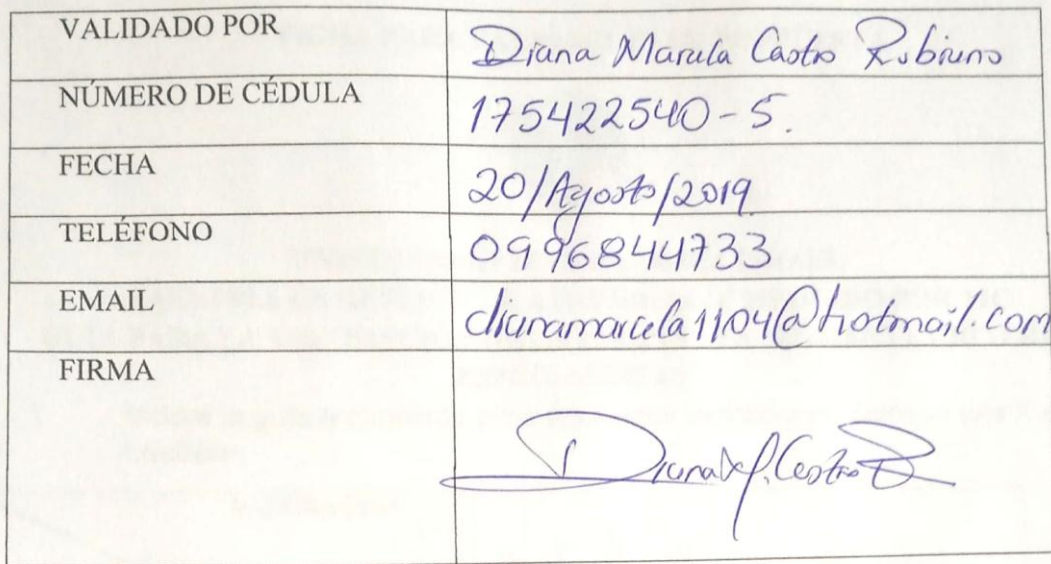 VALIDADO POR Diana Marcela Castro Rubiano
NÚMERO DE CÉDULA 175422540-5.
FECHA 20/Agosto/2019.
TELÉFONO 0996844733
EMAIL dianamarcela1104@hotmail.com
FIRMA Diana M. Castro R